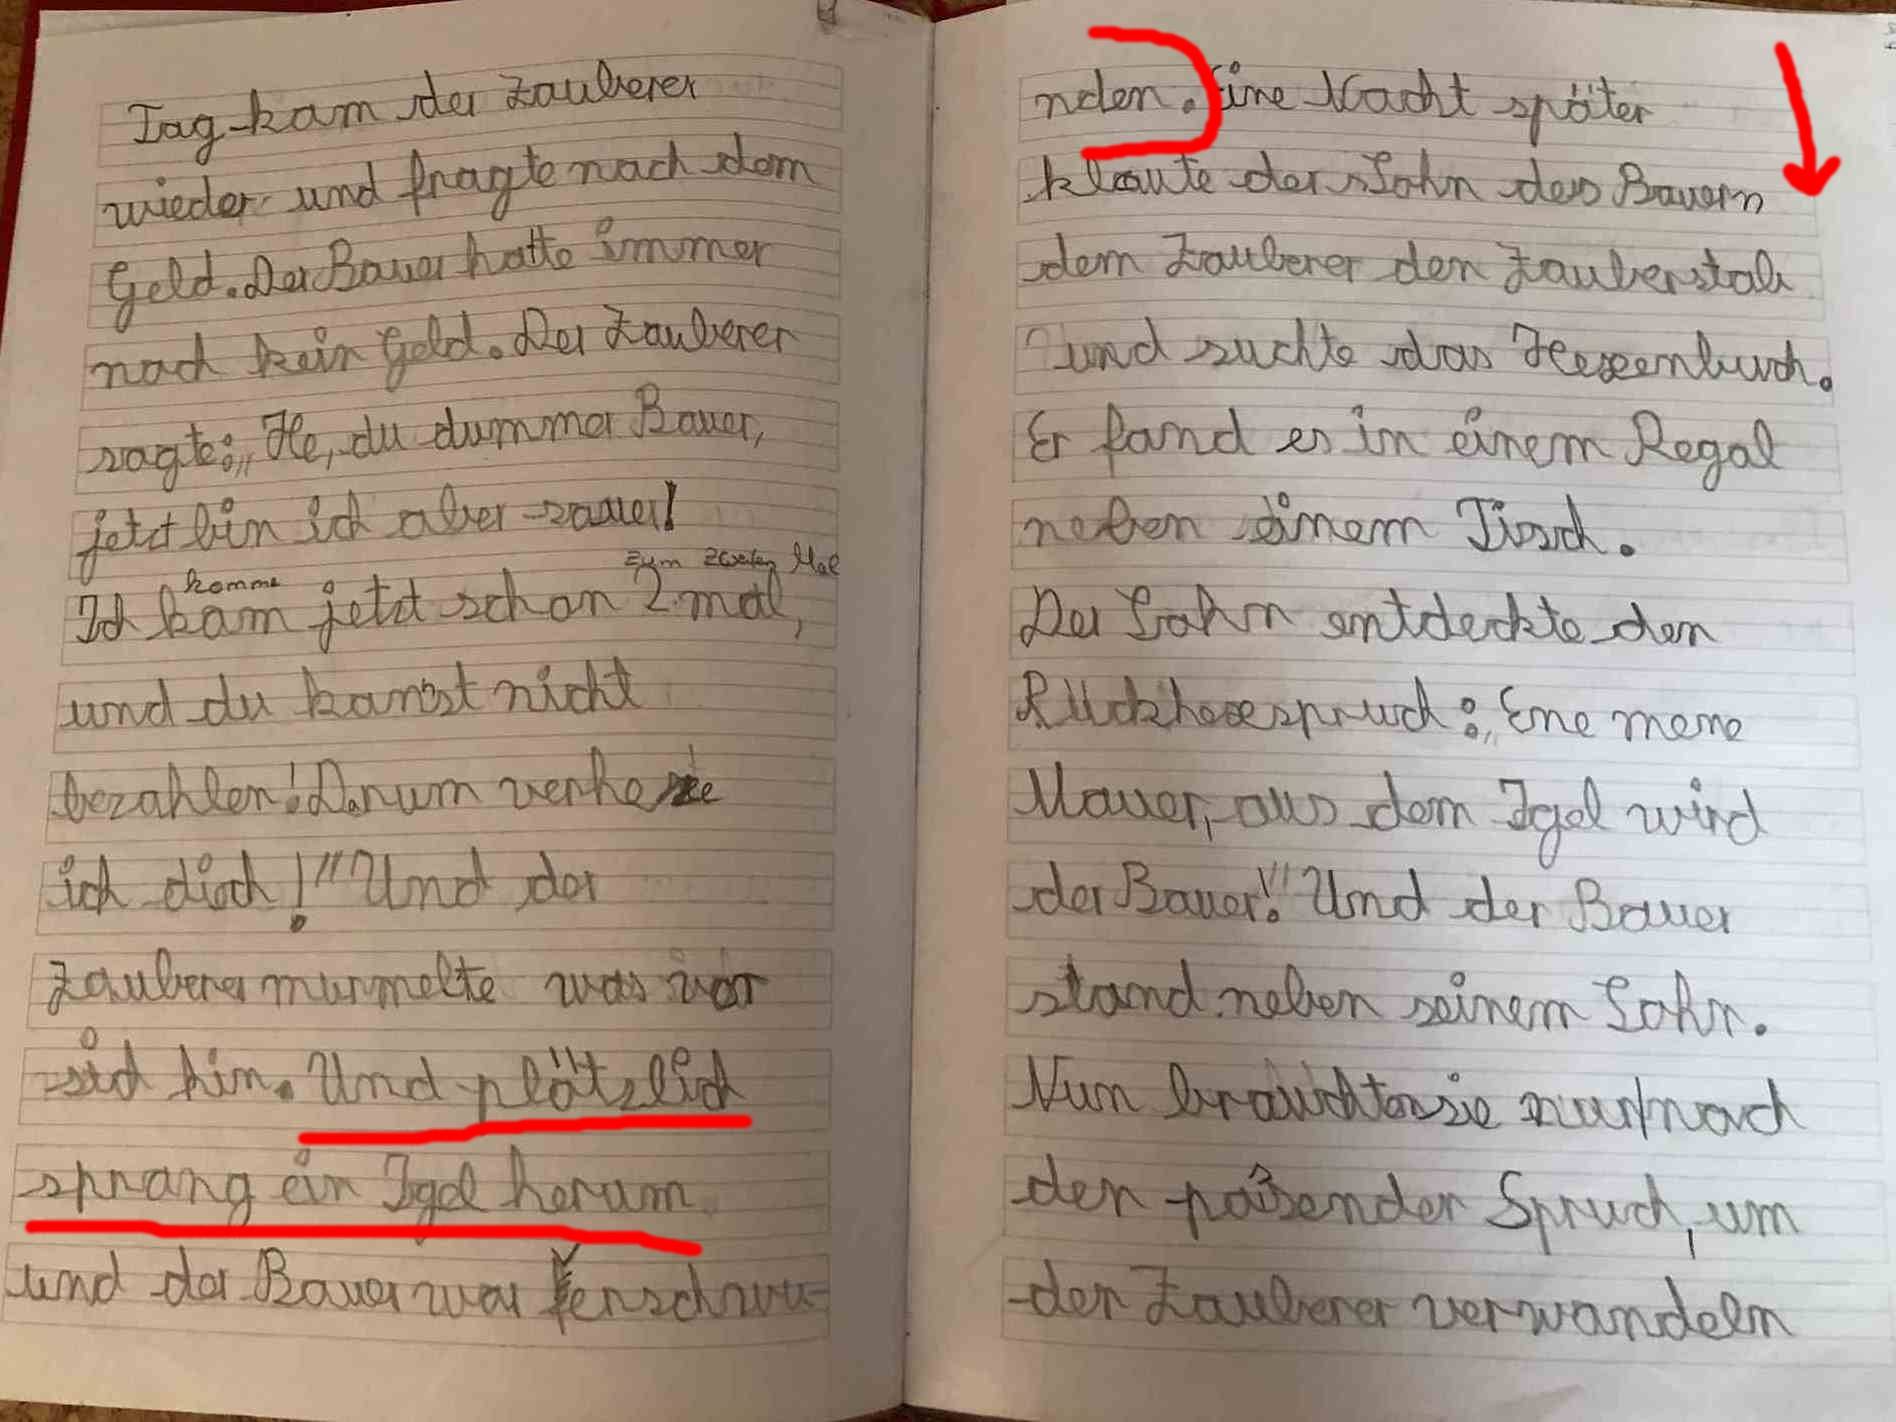 Tag kam der Zauberer
wieder und fragte nach dem
Geld. Der Bauer hatte immer
noch kein Geld. Der Zauberer
sagte: „He, du dummer Bauer,
jetzt bin ich aber sauer!
zum zweiten Mal
komme
Ich kam jetzt schon 2 mal,
und du kanst nicht
bezahlen! Darum verhexe
ich dich!" Und der
Zauberer murmelte was vor
sich hin. Und plötzlich
sprang ein Igel herum
und der Bauer war verschwu-
nden. Eine Nacht später
klaute der Sohn des Bauern
dem Zauberer den Zauberstab
und suchte das Hexenbuch.
Er fand es in einem Regal
neben einem Tisch.
Der Sohn entdeckte den
Rückhexespruch: „Ene mene
Mauer, aus dem Igel wird
der Bauer!" Und der Bauer
stand neben seinem Sohn.
Nun brauchten sie nur noch
den paßenden Spruch, um
den Zauberer verwandeln